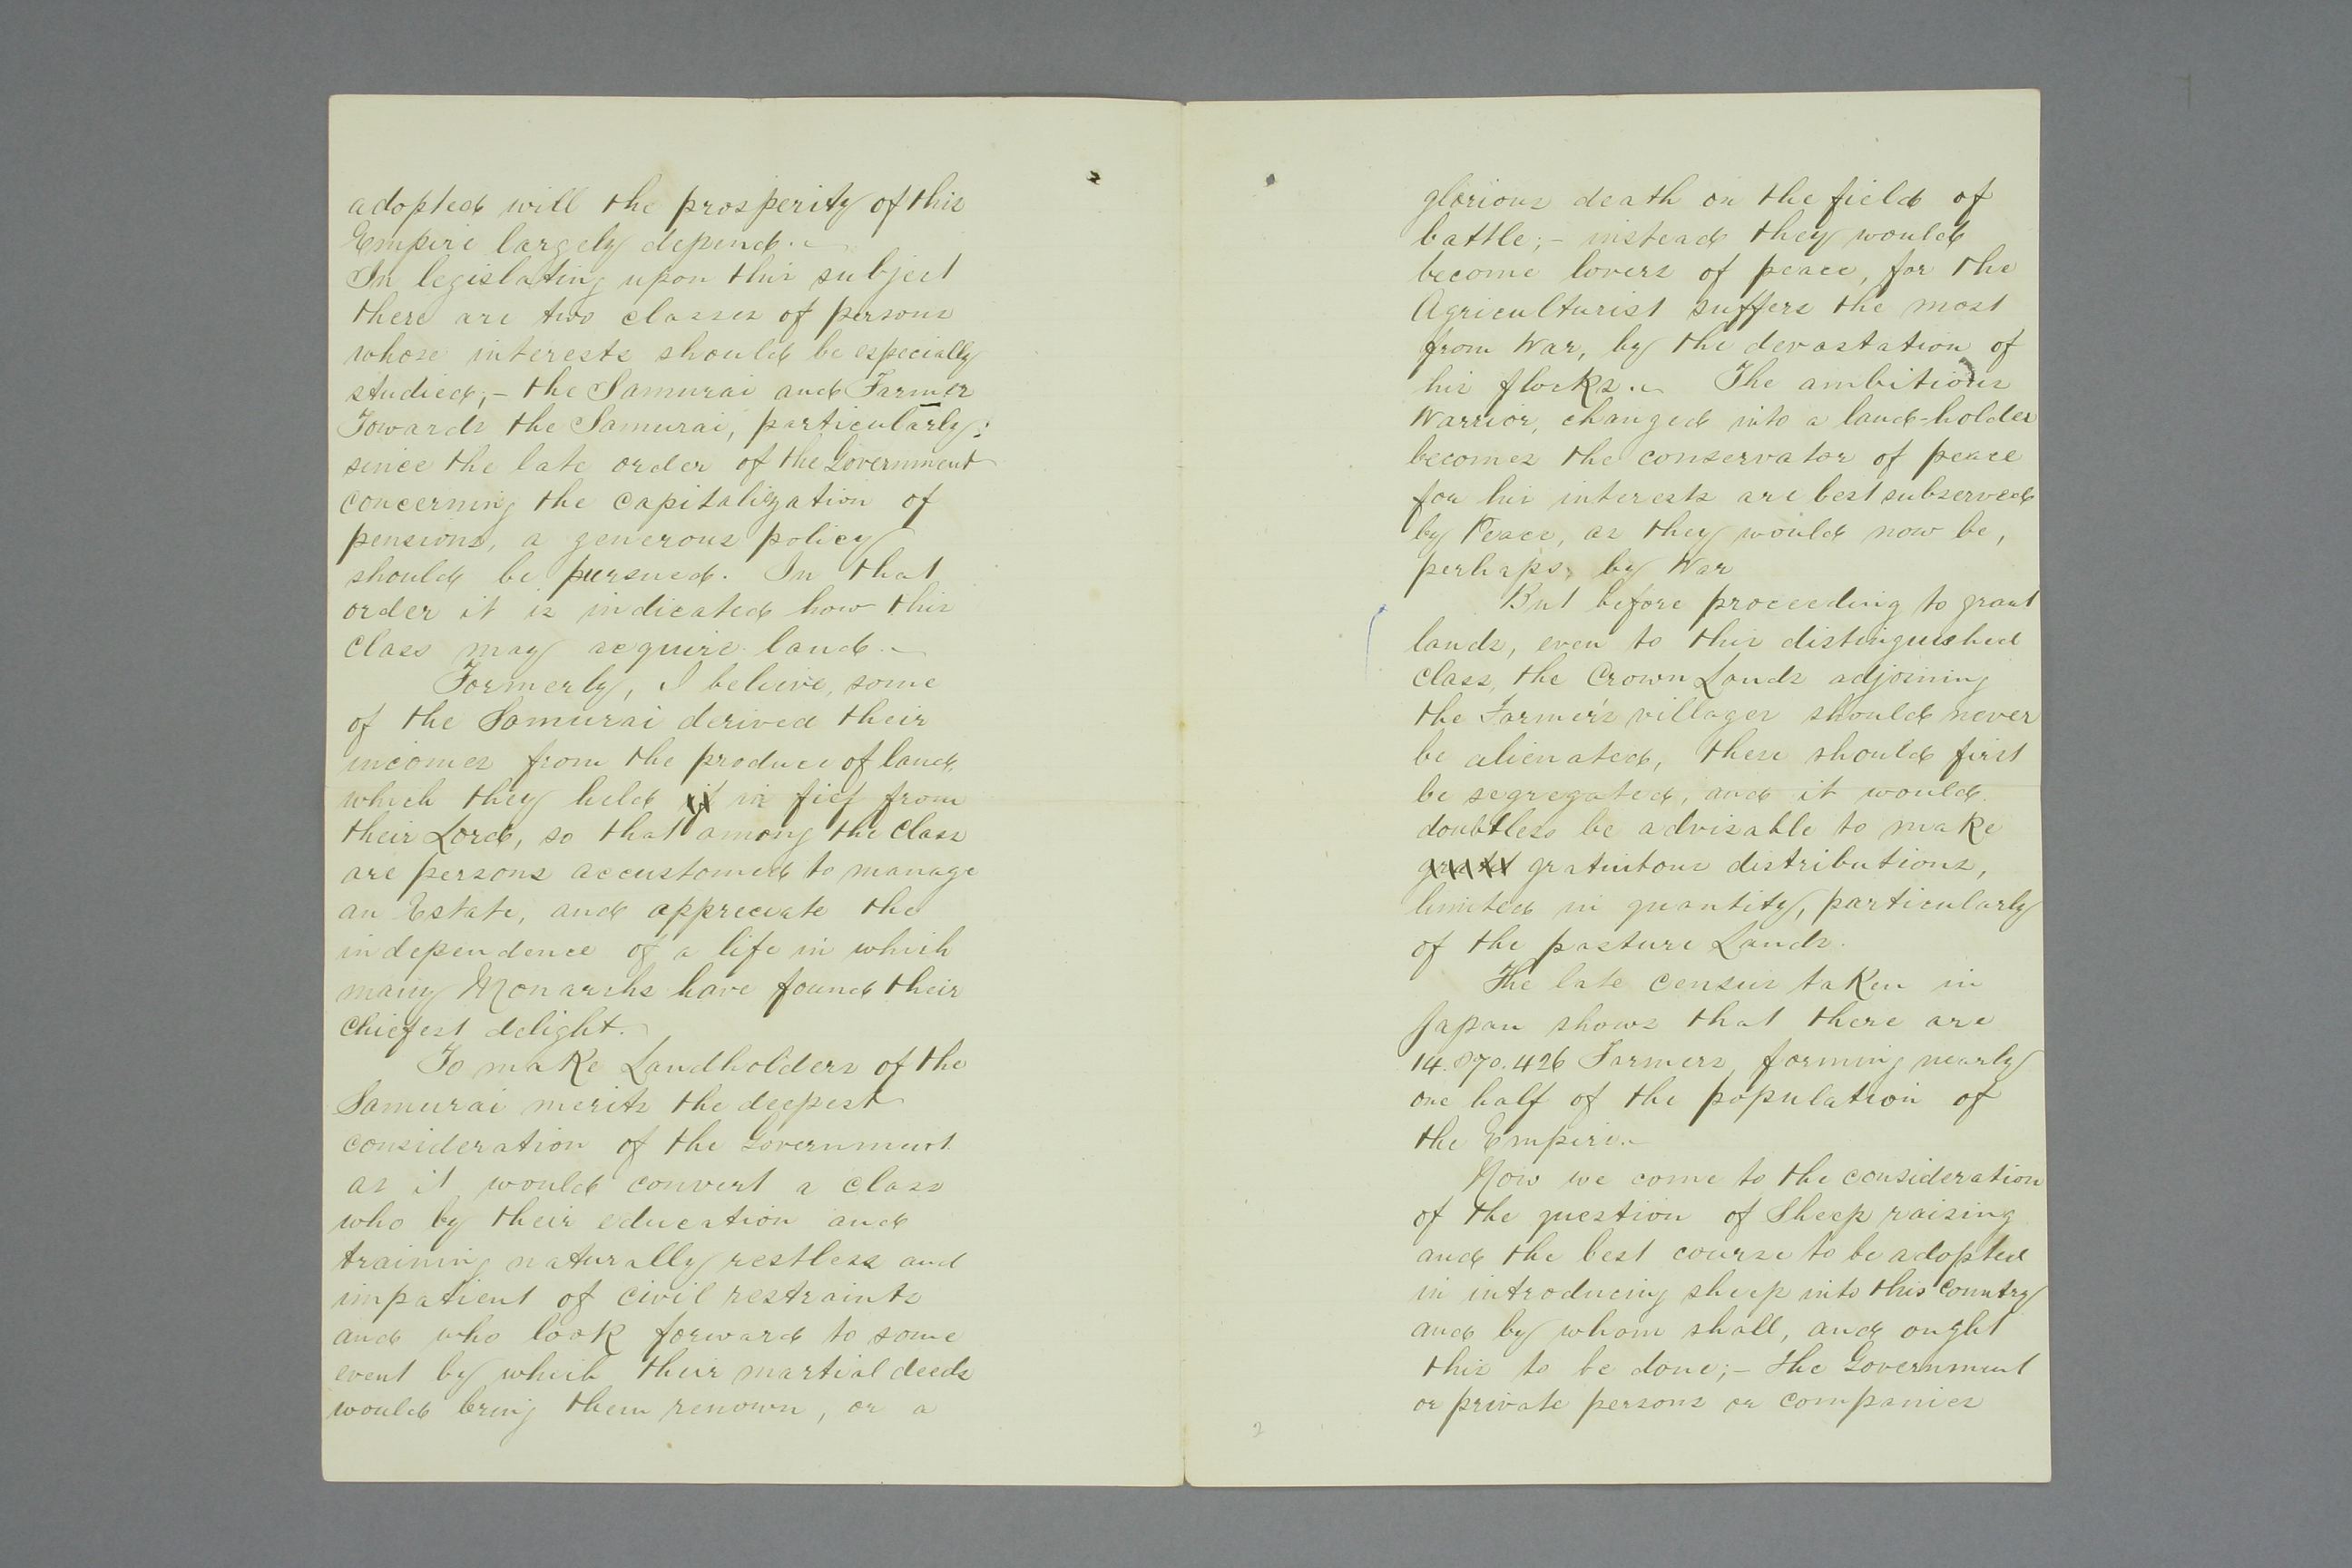 adopted will the prosperity of this
Empire largely depend.
In legislating upon this subject
there are two classes of persons
whose interests should be especially
studied;- the Samurai and Farmer
Towards the Samurai, particularly;
since the late order of the Government
concerning the capitalization of
pensions, a generous policy
should be pursued. In that
order it is indicated how this
Class may acquire land.-
Formerly, I believe, some
of the Samurai derived their
incomes from the produce of land,
which they held in fief from
their Lord, so that among the Class
are persons accustomed to manage
an Estate, and appreciate the
independence of a life in which
many Monarchs have found their
Chiefest delight.
To make Landholders of the
Samurai merits the deepest
consideration of the Government
as it would convert a class
who by their education and
training naturally restless and
impatient of civil restraints
and who look forward to some
event by which their martial deeds
would bring them renown, or a
glorious death on the field of
battle;- instead they would
become lovers of peace, for the
Agriculturist suffers the most
from War, by the devastation of
his flocks. The ambitious
Warrior, changed into a land-holder
becomes the conservator of peace
for his interests are best subserved
by Peace, as they would now be,
perhaps, by War
But before proceeding to grant
lands, even to this distinguished
Class, the Crown Lands adjoining
the Farmer's villages should never
be alienated, these should first
be segregated, and it would
doubtless be advisable to make
gratuitous distributions,
limited in quantity, particularly
of the pasture Lands.
The late Census taken in
Japan shows that there are
14.870.426 Farmers, forming nearly
one half of the population of
the Empire.
Now we come to the consideration
of the question of Sheep raising
and the best course to be adopted
in introducing sheep into this Country
and by whom shall, and ought
this to be done;- the Government
or private persons or companies
2